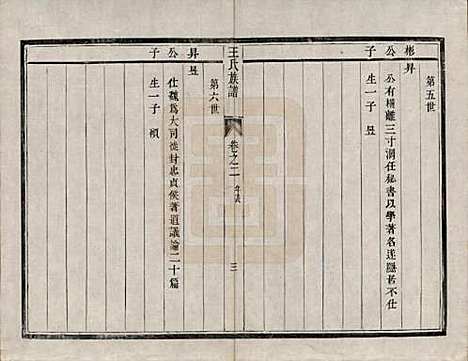 第五世
彬公子
昇
公有
離三寸
任秘書以學著名遂隱居不仕
生一子 昱
王氏族譜
卷之二 年表
三
第六世
昇公子
昱
仕魏爲大司徒封忠貞侯著道議論二十篇
生一子 楨